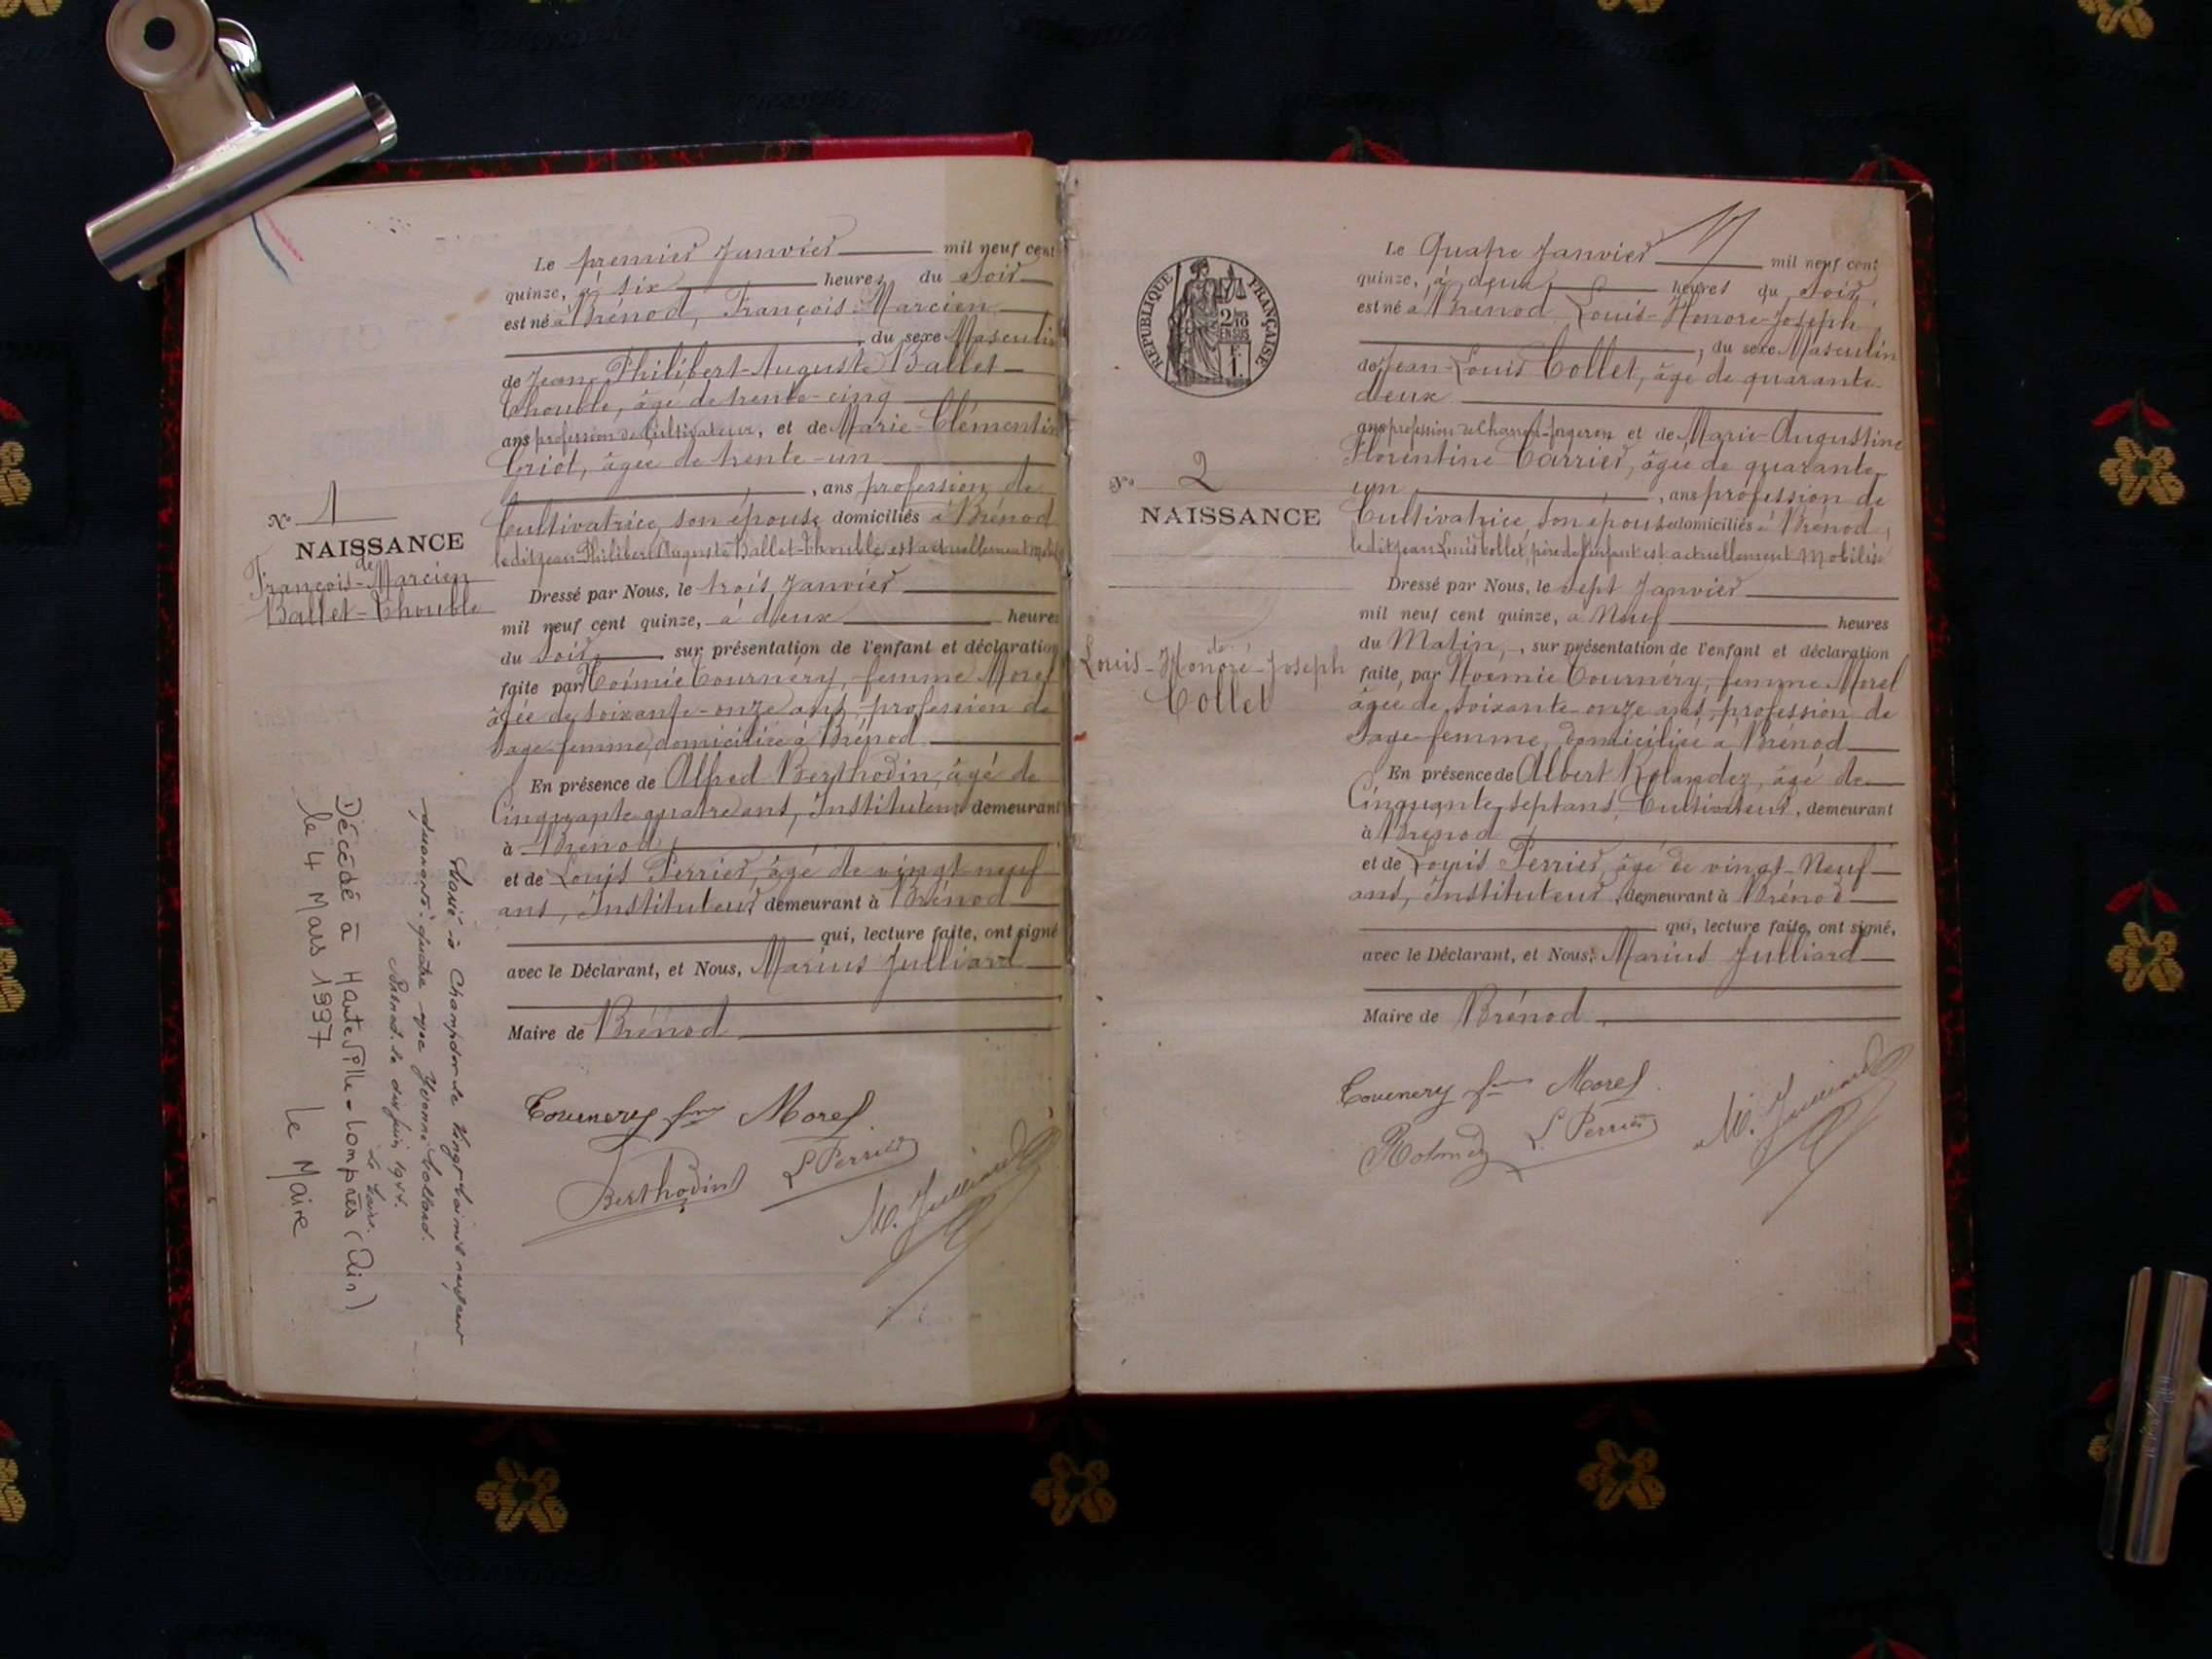 Le premier Janvier mil neuf cent
quinze, à six heures du Soir
est né à Brénod, François-Marcien
, du sexe Masculin
de Jean-Philibert-Auguste Ballet-
Thouble, âgé de trente-cinq
ans profession de Cultivateur, et de Marie-Clémentine
Griot, âgée de trente-un
, ans profession de
Cultivatrice, son épouse, domiciliés à Brénod
le dit Jean Philibert Auguste Ballet-Thouble est actuellement
Nº 1
NAISSANCE
de
François-Marcien
Ballet-Thouble
Dressé par Nous, le trois Janvier
mil neuf cent quinze, à deux heures
du Soir, sur présentation de l'enfant et déclaration
faite par Noémie Tournery, femme Morel
âgée de soixante-onze ans, profession de
Sage-femme, domiciliée à Brénod
En présence de Alfred Berthodin, âgé de
Cinquante quatre ans, Instituteur demeurant
à Brénod
et de Louis Perrier, âgé de vingt neuf
ans, Instituteur demeurant à Brénod
qui, lecture faite, ont signé
avec le Déclarant, et Nous, Marius Julliard
Maire de Brénod
Tournery fme Morel
Berthodin L Perrier
M. Julliard
Marié à Champdor le vingt
quatre Yvonne
Brénod le dix juin
Le Maire
Décédé à Hauteville-Lompnès (Ain)
le 4 Mars 1997 Le Maire
RÉPUBLIQUE FRANÇAISE
2/10
EN SUS
F.
1.
Le Quatre Janvier mil neuf cent
quinze, à deux heures du Soir,
est né à Brénod Louis-Honoré-Joseph
, du sexe Masculin
de Jean-Louis Collet, âgé de quarante-
deux
ans profession de Charron-forgeron et de Marie-Augustine
Florentine Carrier, âgée de quarante-
un , ans profession de
Cultivatrice, son épouse domiciliés à Brénod,
le dit Jean Louis Collet, père de l'enfant est actuellement Mobilisé
Nº 2
NAISSANCE
de
Louis-Honoré-Joseph
Collet
Dressé par Nous, le sept Janvier
mil neuf cent quinze, à Neuf heures
du Matin, sur présentation de l'enfant et déclaration
faite, par Noémie Tournery, femme Morel
âgée de soixante onze ans, profession de
Sage-femme, domiciliée à Brénod
En présence de Albert Rolandez, âgé de
Cinquante-sept ans, Cultivateur, demeurant
à Brénod
et de Louis Perrier, âgé de vingt-Neuf
ans, Instituteur, demeurant à Brénod
qui, lecture faite, ont signé,
avec le Déclarant, et Nous, Marius Julliard
Maire de Brénod
Tournery fme Morel
L. Perrier M. Julliard